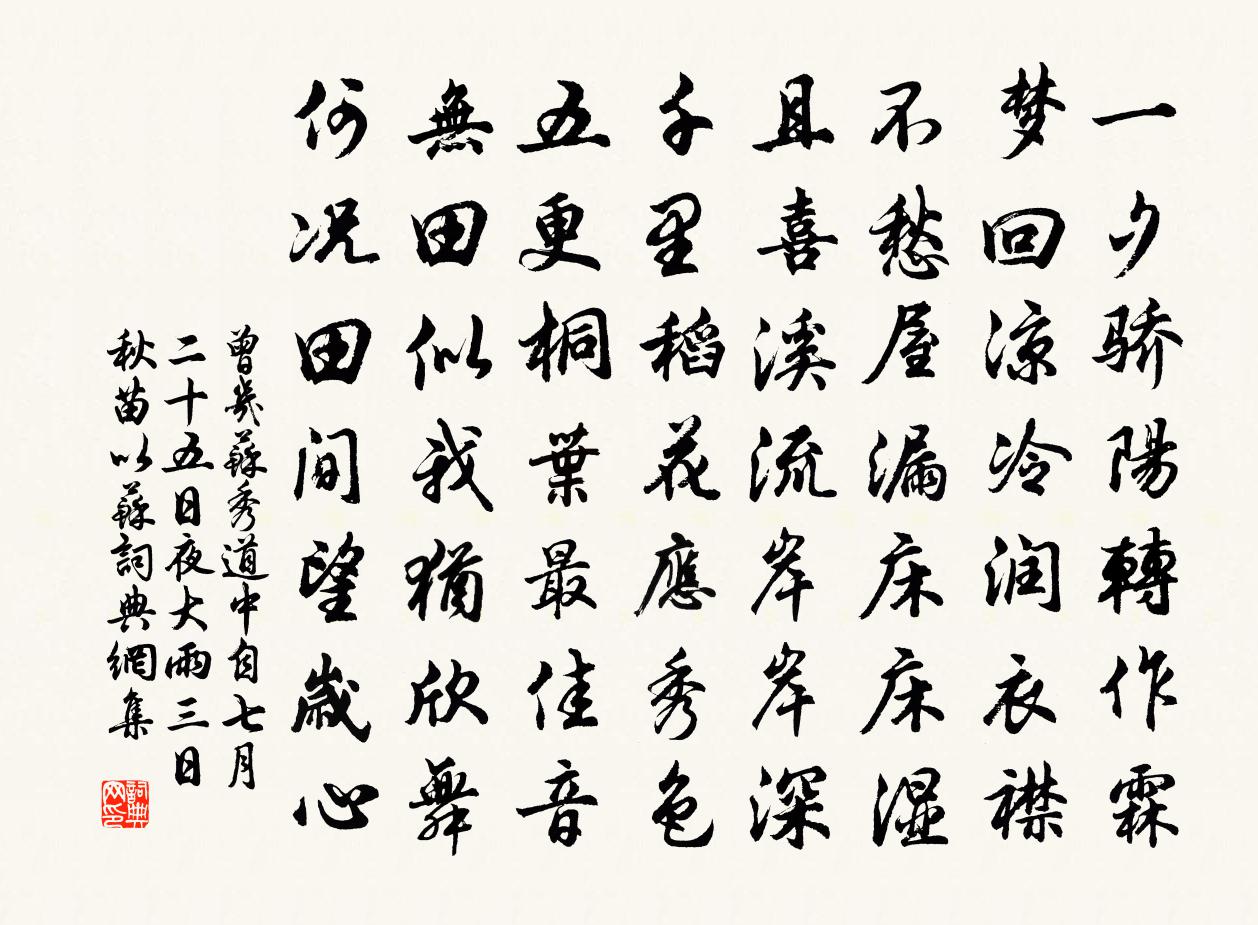 一夕骄陽轉作霖
梦回涼冷润衣襟
不愁屋漏床床湿
且喜溪流岸岸深
千里稻花應秀色
五更桐葉最佳音
無田似我猶欣舞
何况田間望歲心
曾幾蘇秀道中自七月
二十五日夜大雨三日
秋苗以蘇詞典網集
詞典网印